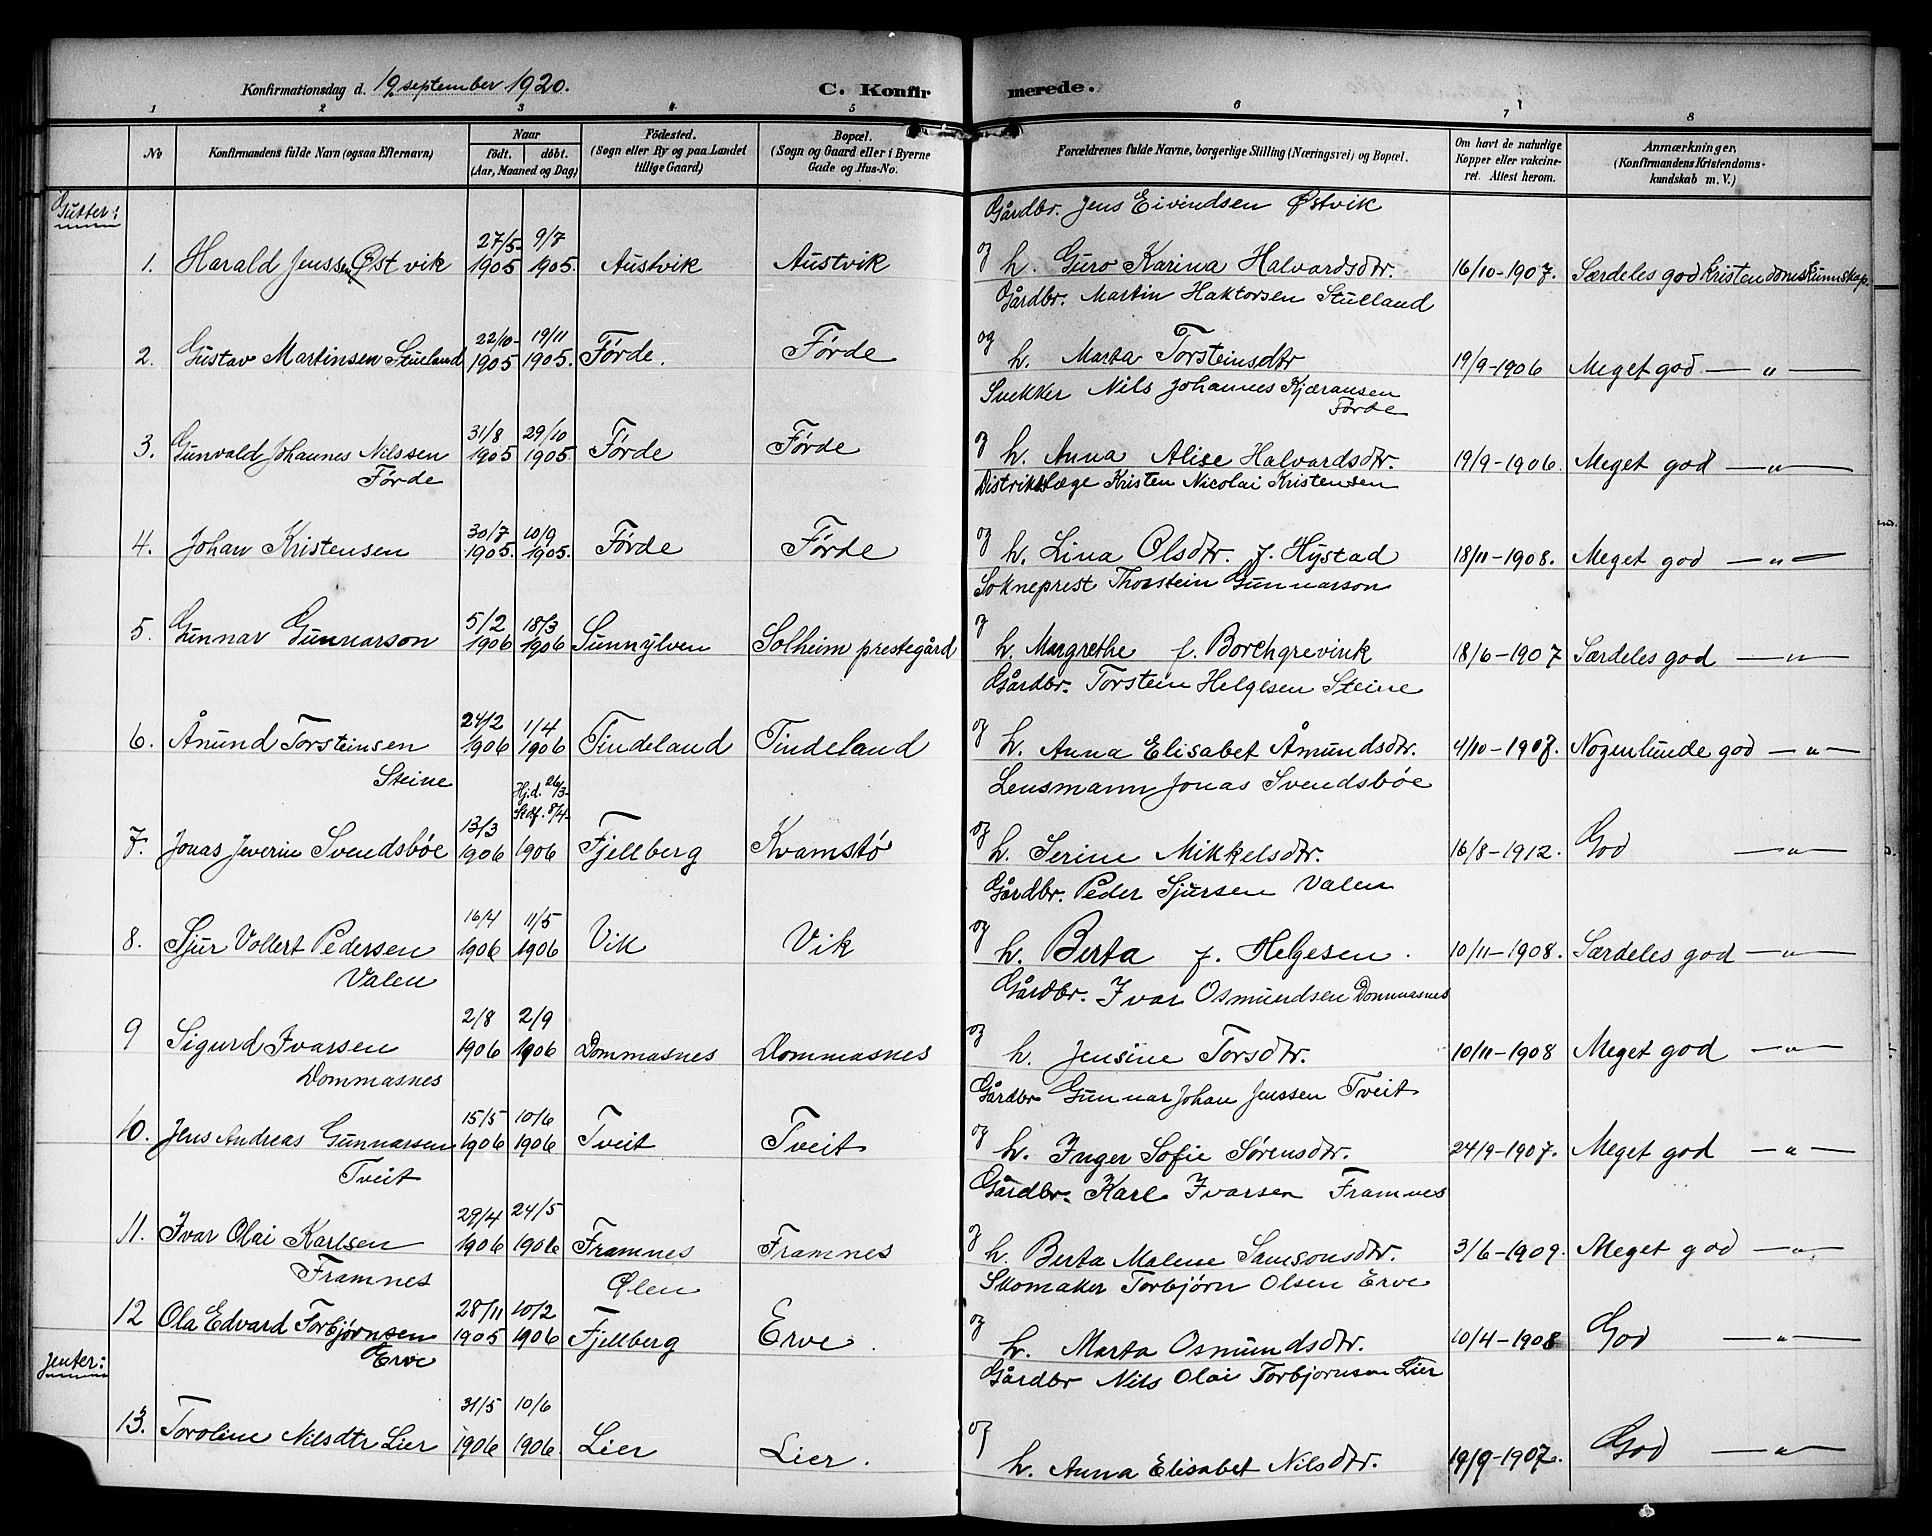 Konfirmationsdag d. 19. september 1920.
C. Konfirmerede.
1 2 3 4 5 6 7 8
No
Konfirmandens fulde Navn (ogsaa Efternavn)
Naar
födt. döbt.
(Aar, Maaned og Dag)
Födested.
(Sogn eller By og paa Landet
tillige Gaard)
Bopæl.
(Sogn og Gaard eller i Byerne
Gade og Hus-No.
Forældrenes fulde Navne, borgerlige Stilling (Næringsvei) og Bopæl.
Om havt de naturlige
Kopper eller vakcine-
ret. Attest herom.
Anmærkninger.
(Konfirmandens Kristendoms-
kundskab m. V.)
Gutter:
Gårdbr. Jens Eivindsen Østvik
27/5- 9/7 og
1. Harald Jenssen Østvik 1905 1905. Austvik Austvik h. Guro Karina Halvardsdtr. 16/10-1907. Særdeles god Kristendomskunnskap.
Gårdbr. Martin Haktorsen Stueland
22/10- 19/11 og
2. Gustav Martinsen Stueland 1905 1905. Førde. Førde h. Marta Torsteinsdtr 19/9-1906 Meget god — " —
Snekker Nils Johannes Kjæransen
Førde
31/8 29/10 og
3. Gunvald Johannes Nilssen 1905 1905. Førde Førde h. Anna Alise Halvardsdtr. 19/9-1906. Meget god — " —
Førde
Distriktslæge Kristen Nicolai Kristensen
30/7 10/9 og
4. Johan Kristensen 1905. 1905. Førde Førde h. Lina Olsdtr. f. Hystad 18/11-1908. Meget god — " —
Sokneprest Thorstein Gunnarson
5/2 18/3 og
5. Gunnar Gunnarson 1906 1906 Sunnylven Solheim prestegård h. Margrethe f. Borchgrevink 18/6-1907 Særdeles god — " —
Gårdbr. Torstein Helgesen Steine
24/2 1/4 og
6. Ånund Torsteinsen 1906 1906 Tindeland Tindeland h. Anna Elisabet Åmundsdtr. 4/10-1907. Nogenlunde god — " —
Steine
Lensmann Jonas Svendsbøe
Hj.d. 26/3-
Stdf. 8/4-
13/3 og
7. Jonas Severin Svendsbøe 1906 1906 Fjellberg Kvamstø h. Serine Mikkelsdtr. 16/8-1912. God — " —
Gårdbr. Peder Sjursen Valen
16/4 11/5 og
8. Sjur Vollert Pedersen 1906 1906 Vik Vik h. Berta f. Helgesen. 10/11-1908. Særdeles god — " —
Valen
Gårdbr. Ivar Osmundsen Dommasnes
2/8 2/9 og
9 Sigurd Ivarsen 1906 1906 Dommasnes Dommasnes h. Jensine Torsdtr. 10/11-1908 Meget god — " —
Dommasnes
Gårdbr Gunnar Johan Jenssen Tveit
15/5 10/6 og
10. Jens Andreas Gunnarsen 1906 1906 Tveit Tveit h. Inger Sofie Sørensdtr. 24/9-1907. Meget god — " —
Tveit
Gårdbr. Karl Ivarsen Framnes
29/4 24/5 og
11. Ivar Olai Karlsen 1906 1906 Framnes Framnes h. Berta Malene Samsonsdtr. 3/6-1909. Meget god — " —
Framnes
Skomaker Torbjørn Olsen Erve
28/11 10/2 Ølen og
12 Ola Edvard Torbjørnsen 1905 1906 Fjellberg Erve. h. Marta Osmundsdtr. 10/4-1908 God — " —
Erve
Jenter:
Gårdbr Nils Olai Torbjornsen Lier
31/5 10/6 og
13. Toroline Nilsdtr Lier 1906 1906. Lier Lier. h. Anna Elisabet Nilsdtr. 19/9-1907. God — " —